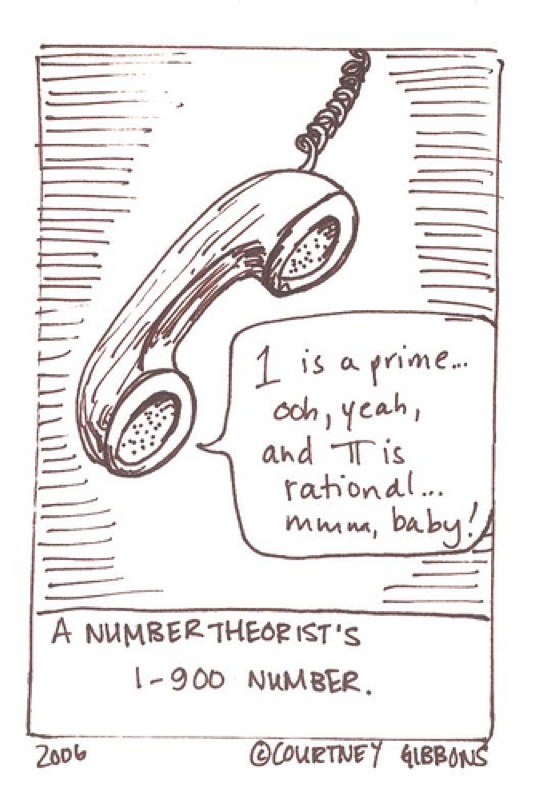 1 is a prime...
ooh, yeah,
and π is
rational...
mmm, baby!
A NUMBER THEORIST'S
1-900 NUMBER.
2006 ©COURTNEY GIBBONS